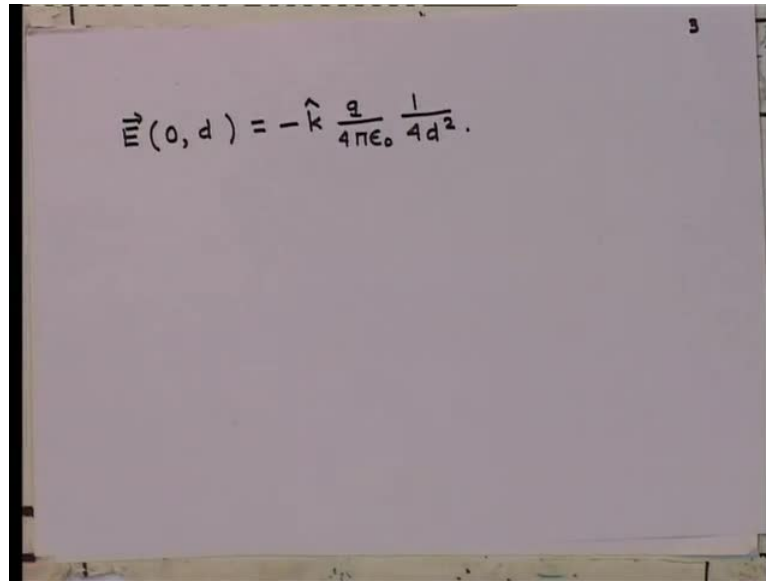 3
\vec{E}(0, d) = -\hat{k} \frac{q}{4\pi\epsilon_0} \frac{1}{4d^2}.